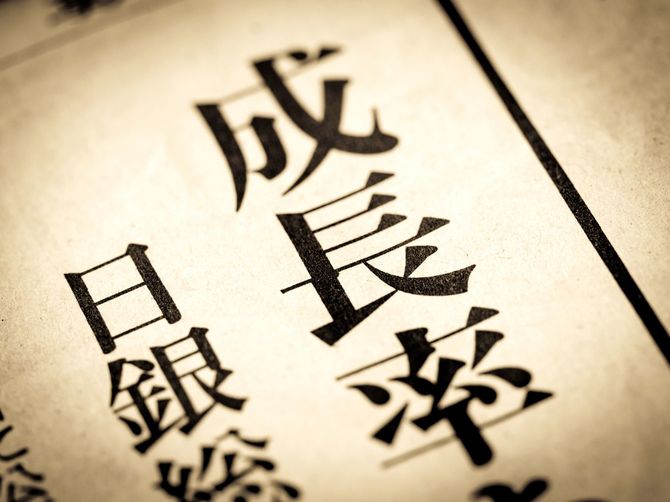 成長率
日銀総